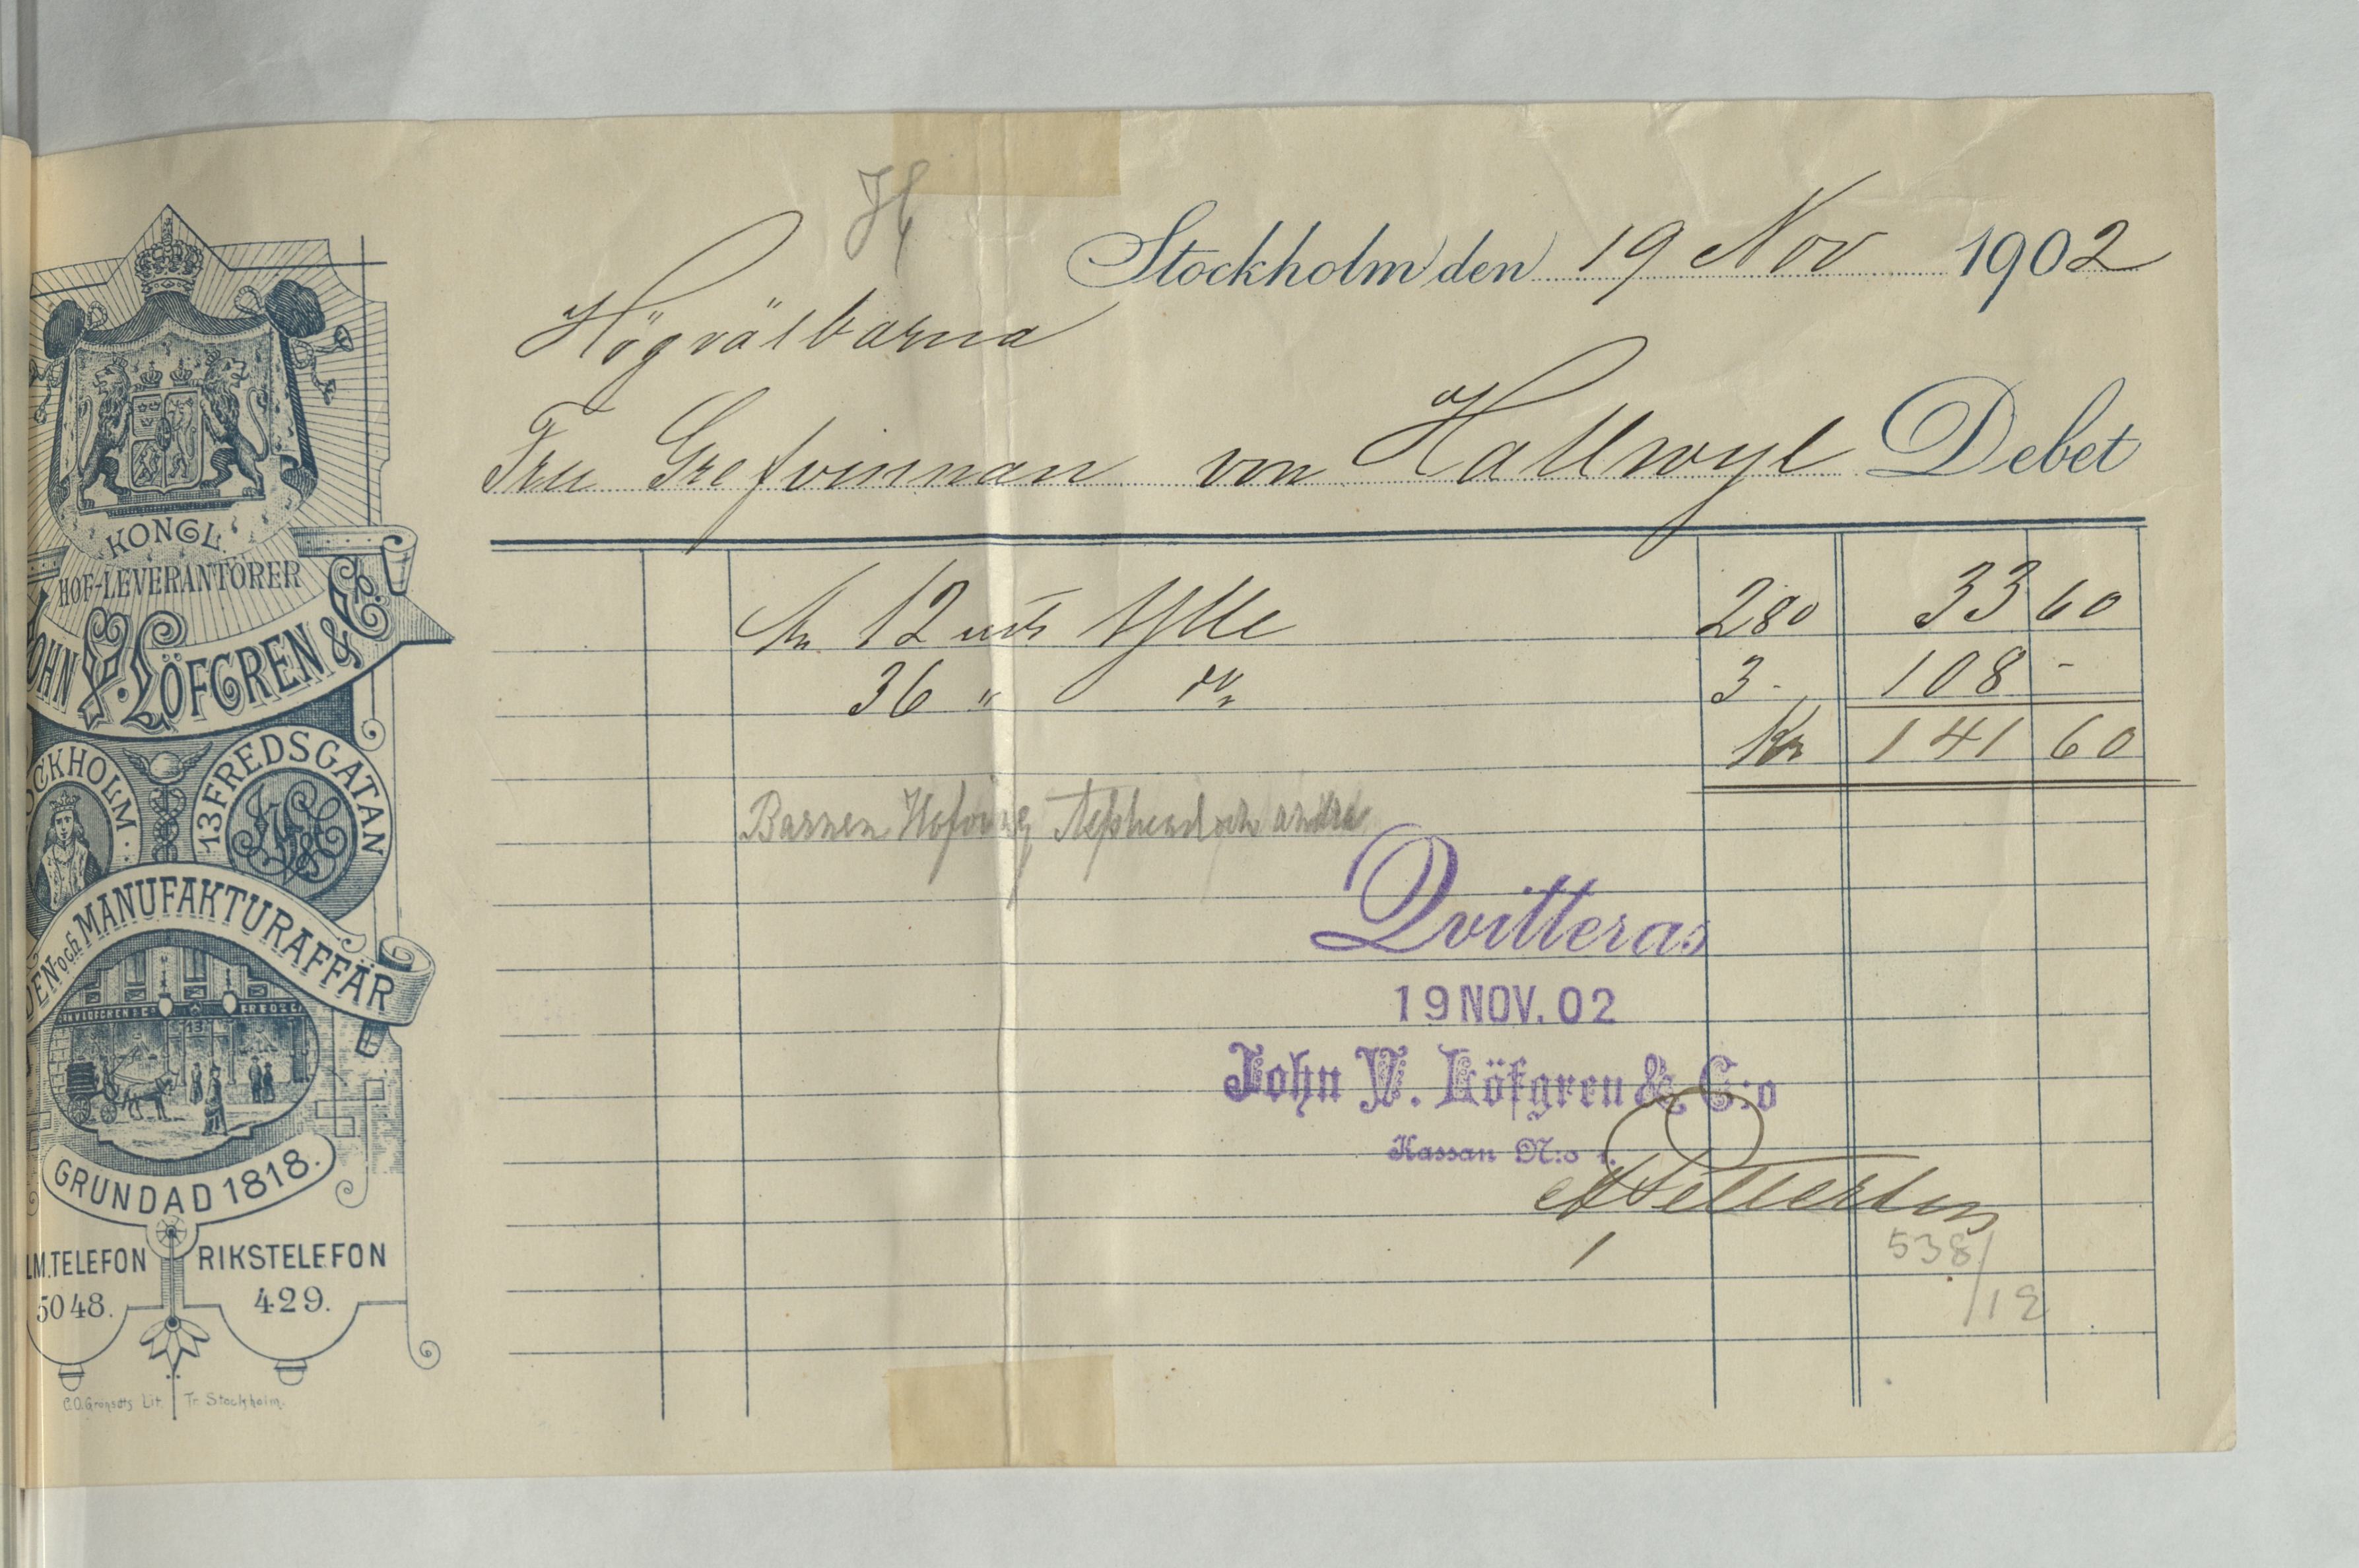 KONGL.
HOF-LEVERANTÖRER
JOHN W. LÖFGREN & Co
STOCKHOLM.
13 FREDSGATAN
SIDEN och MANUFAKTURAFFÄR
FREDSG
13
GRUNDAD 1818.
LM. TELEFON
5048.
RIKSTELEFON
429.
Lit. Tr. Stockholm.
H
Stockholm den 19 Nov 1902
Högvälborna
Fru Grefvinnan von Hallwyl Debet
12 mtr Ylle 280 33 60
36 " do 3- 108 -
Kr 141 60
Barnen Hofving och andra
Qvitteras
19 NOV. 02
John W. Löfgren & C:o
Kassan N:o 1.
538/12